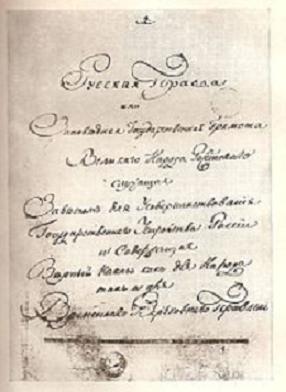 Русская Правда
или
Заповедная Государственная Грамота
Великаго Народа Россійскаго
служащая
Завѣтомъ для Усовершенствованія
Государственнаго Устройства Россіи
и Содержащая
Вѣрный Наказъ какъ для Народа
такъ и для
Временнаго Верховнаго Правленія